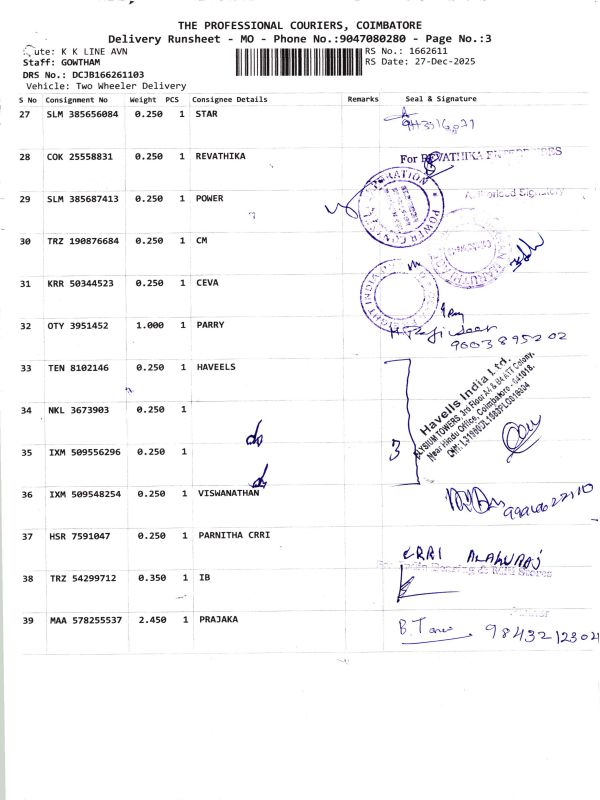 THE PROFESSIONAL COURIERS, COIMBATORE
Delivery Runsheet - MO - Phone No.:9047080280 - Page No.:3
ute: K K LINE AVN
RS No.: 1662611
Staff: GOWTHAM
RS Date: 27-Dec-2025
DRS No.: DCJB166261103
Vehicle: Two Wheeler Delivery
S No Consignment No Weight PCS Consignee Details Remarks Seal & Signature
27 SLM 385656084 0.250 1 STAR
28 COK 25558831 0.250 1 REVATHIKA
For REVATHIKA ENTERPRISES
Authorised Signatory
29 SLM 385687413 0.250 1 POWER
30 TRZ 190876684 0.250 1 CM
31 KRR 50344523 0.250 1 CEVA
32 OTY 3951452 1.000 1 PARRY
9003895202
33 TEN 8102146 0.250 1 HAVEELS
Havells India Ltd.
ELYSIUM TOWERS, 3rd Floor A4 & B4 ATT Colony,
Near Hindu Office, Coimbatore - 641018.
34 NKL 3673903 0.250 1
do
3
35 IXM 509556296 0.250 1
do
36 IXM 509548254 0.250 1 VISWANATHAN
37 HSR 7591047 0.250 1 PARNITHA CRRI
CRRI
38 TRZ 54299712 0.350 1 IB
39 MAA 578255537 2.450 1 PRAJAKA
B.
9843212304